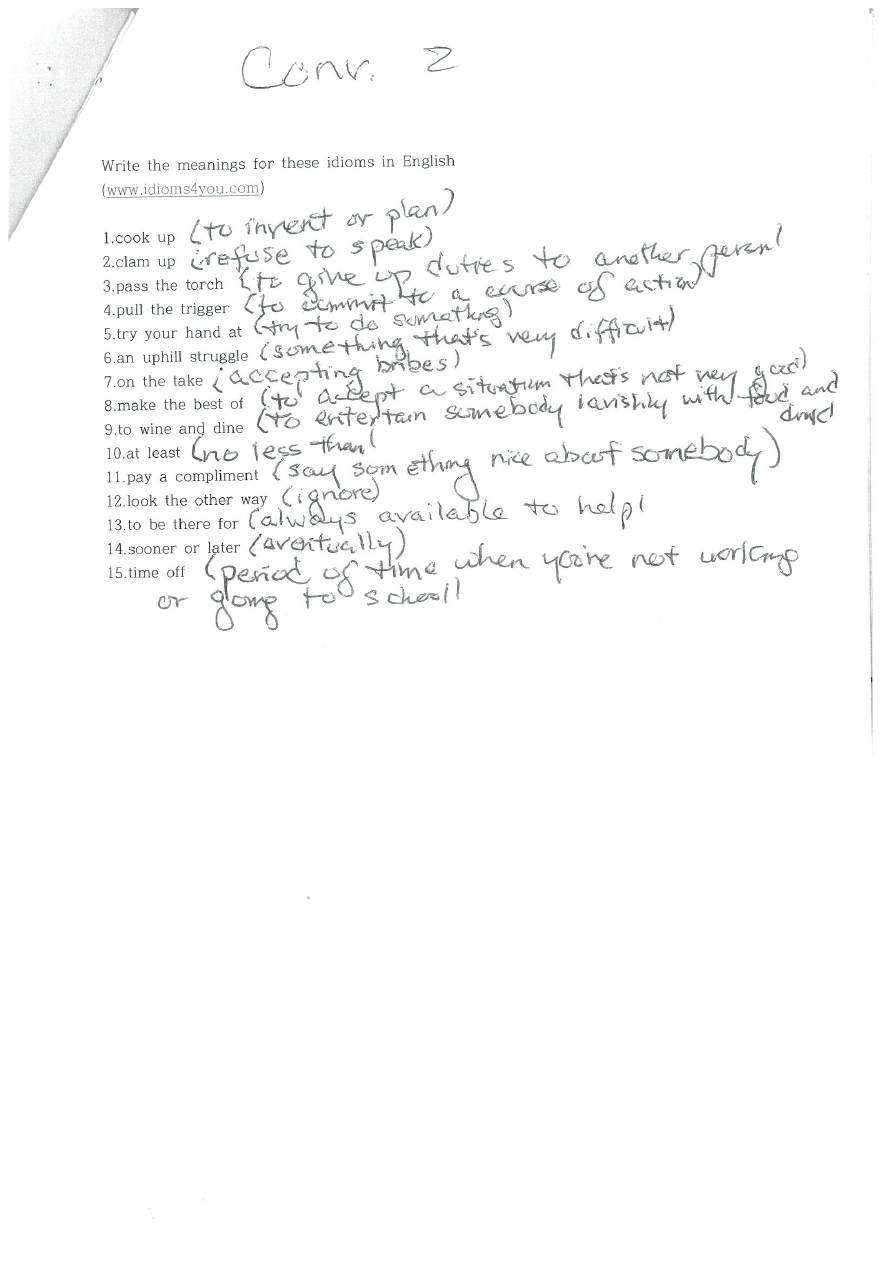 Conv. 2
Write the meanings for these idioms in English
(www.idioms4you.com)
1.cook up (to invent or plan)
2.clam up (refuse to speak)
3.pass the torch (to give up duties to another person)
4.pull the trigger (to commit to a course of action)
5.try your hand at (try to do something)
6.an uphill struggle (something that's very difficult)
7.on the take (accepting bribes)
8.make the best of (to accept a situation that's not very good)
9.to wine and dine (to entertain somebody lavishly with food and
10.at least (no less than)
11.pay a compliment (say something nice about somebody)
12.look the other way (ignore)
13.to be there for (always available to help)
14.sooner or later (eventually)
15.time off (period of time when you're not working
or going to school)